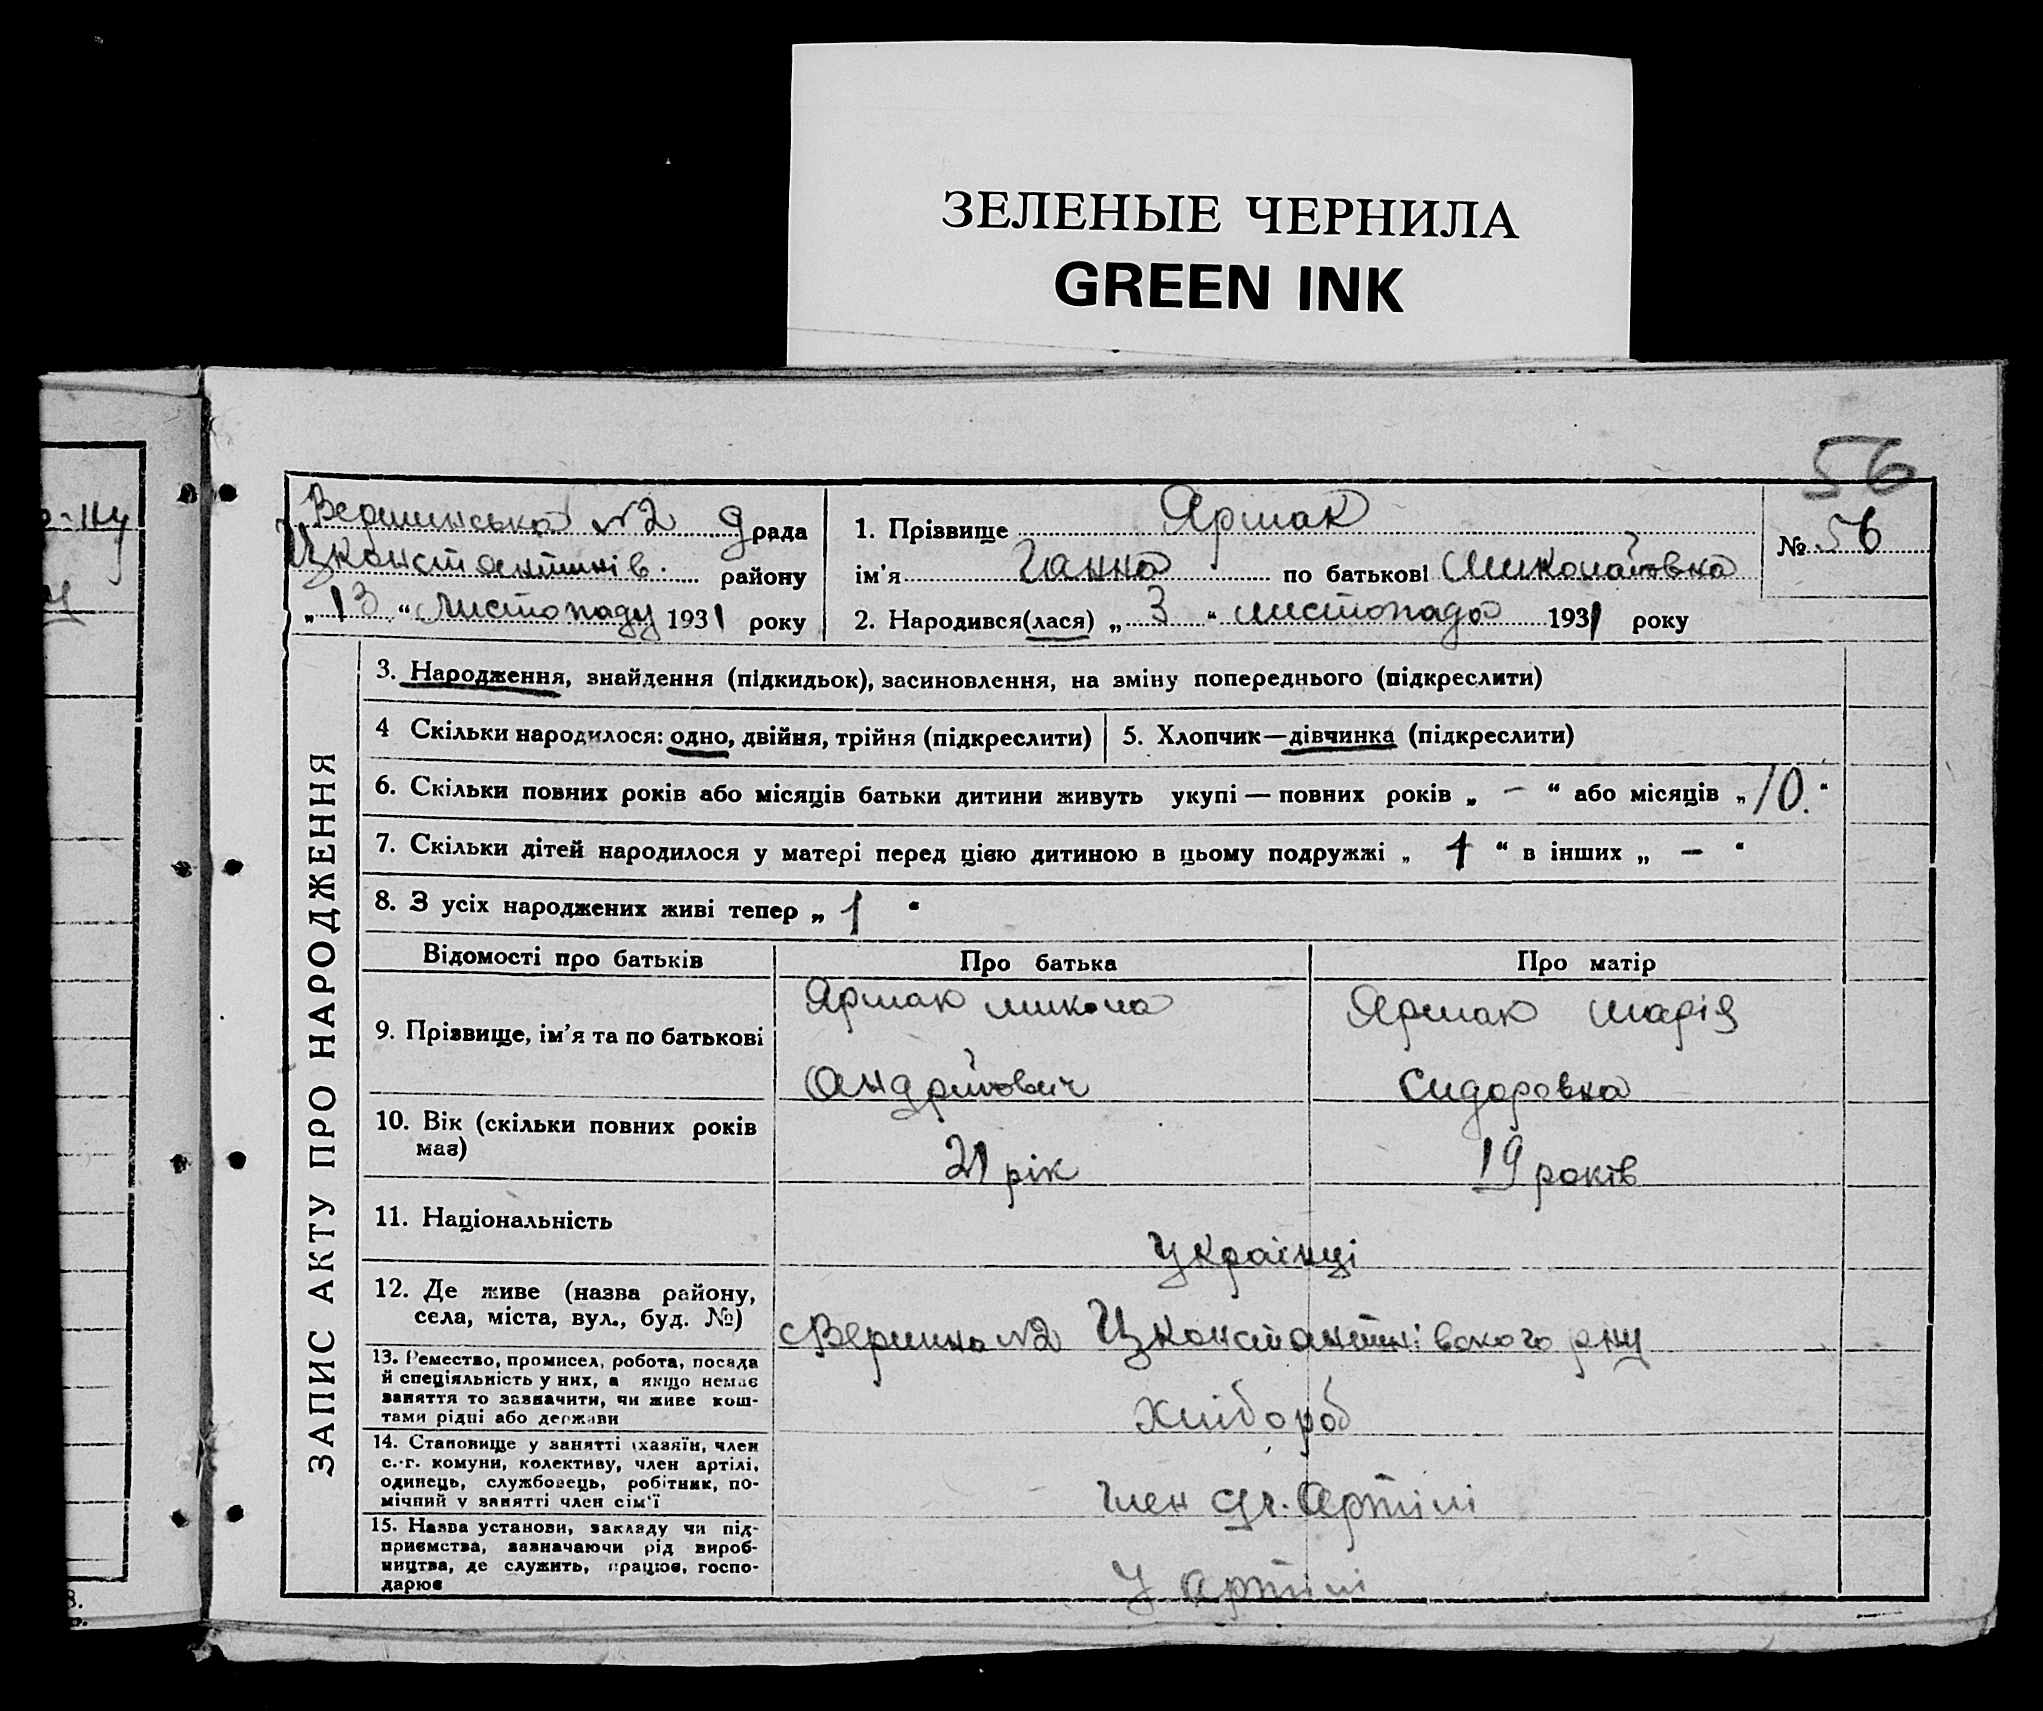 ЗЕЛЕНЫЕ ЧЕРНИЛА
GREEN INK
56
Вершинська №2 рада
Цконстантинів. району
„ 13 “ Листопаду 1931 року
1. Прізвище Ярмак
ім’я Ганна по батькові Миколаївна
№ 56
2. Народився(лася) „ 3 “ листопада 1931 року
ЗАПИС АКТУ ПРО НАРОДЖЕННЯ
3. Народження, знайдення (підкидьок), засиновлення, на зміну попереднього (підкреслити)
4 Скільки народилося: одно, двійня, трійня (підкреслити)
5. Хлопчик—дівчинка (підкреслити)
6. Скільки повних років або місяців батьки дитини живуть укупі — повних років „ — “ або місяців „ 10. “
7. Скільки дітей народилося у матері перед цією дитиною в цьому подружжі „ 1 “ в інших „ — “
8. З усіх народжених живі тепер „ 1 “
Відомості про батьків
Про батька
Про матір
9. Прізвище, ім’я та по батькові
Ярмак микола
Андрійович
Ярмак марія
Сидоровна
10. Вік (скільки повних років
має)
21 рік
19 років
11. Національність
Українці
12. Де живе (назва району,
села, міста, вул., буд. №)
с Вершина №2 Цконстантинівского рну
13. Ремество, промисел, робота, посада
й спеціяльність у них, а якщо немає
заняття то зазначити, чи живе кош-
тами рідні або держави
Хлібороб
14. Становище у занятті (хазяїн, член
с.-г. комуни, колективу, член артілі,
одинець, службовець, робітник, по-
мічний у занятті член сім’ї
Член сг. Артілі
15. Назва установи, закладу чи під-
приємства, зазначаючи рід вироб-
ництва, де служить, працює, госпо-
дарює
У артілі